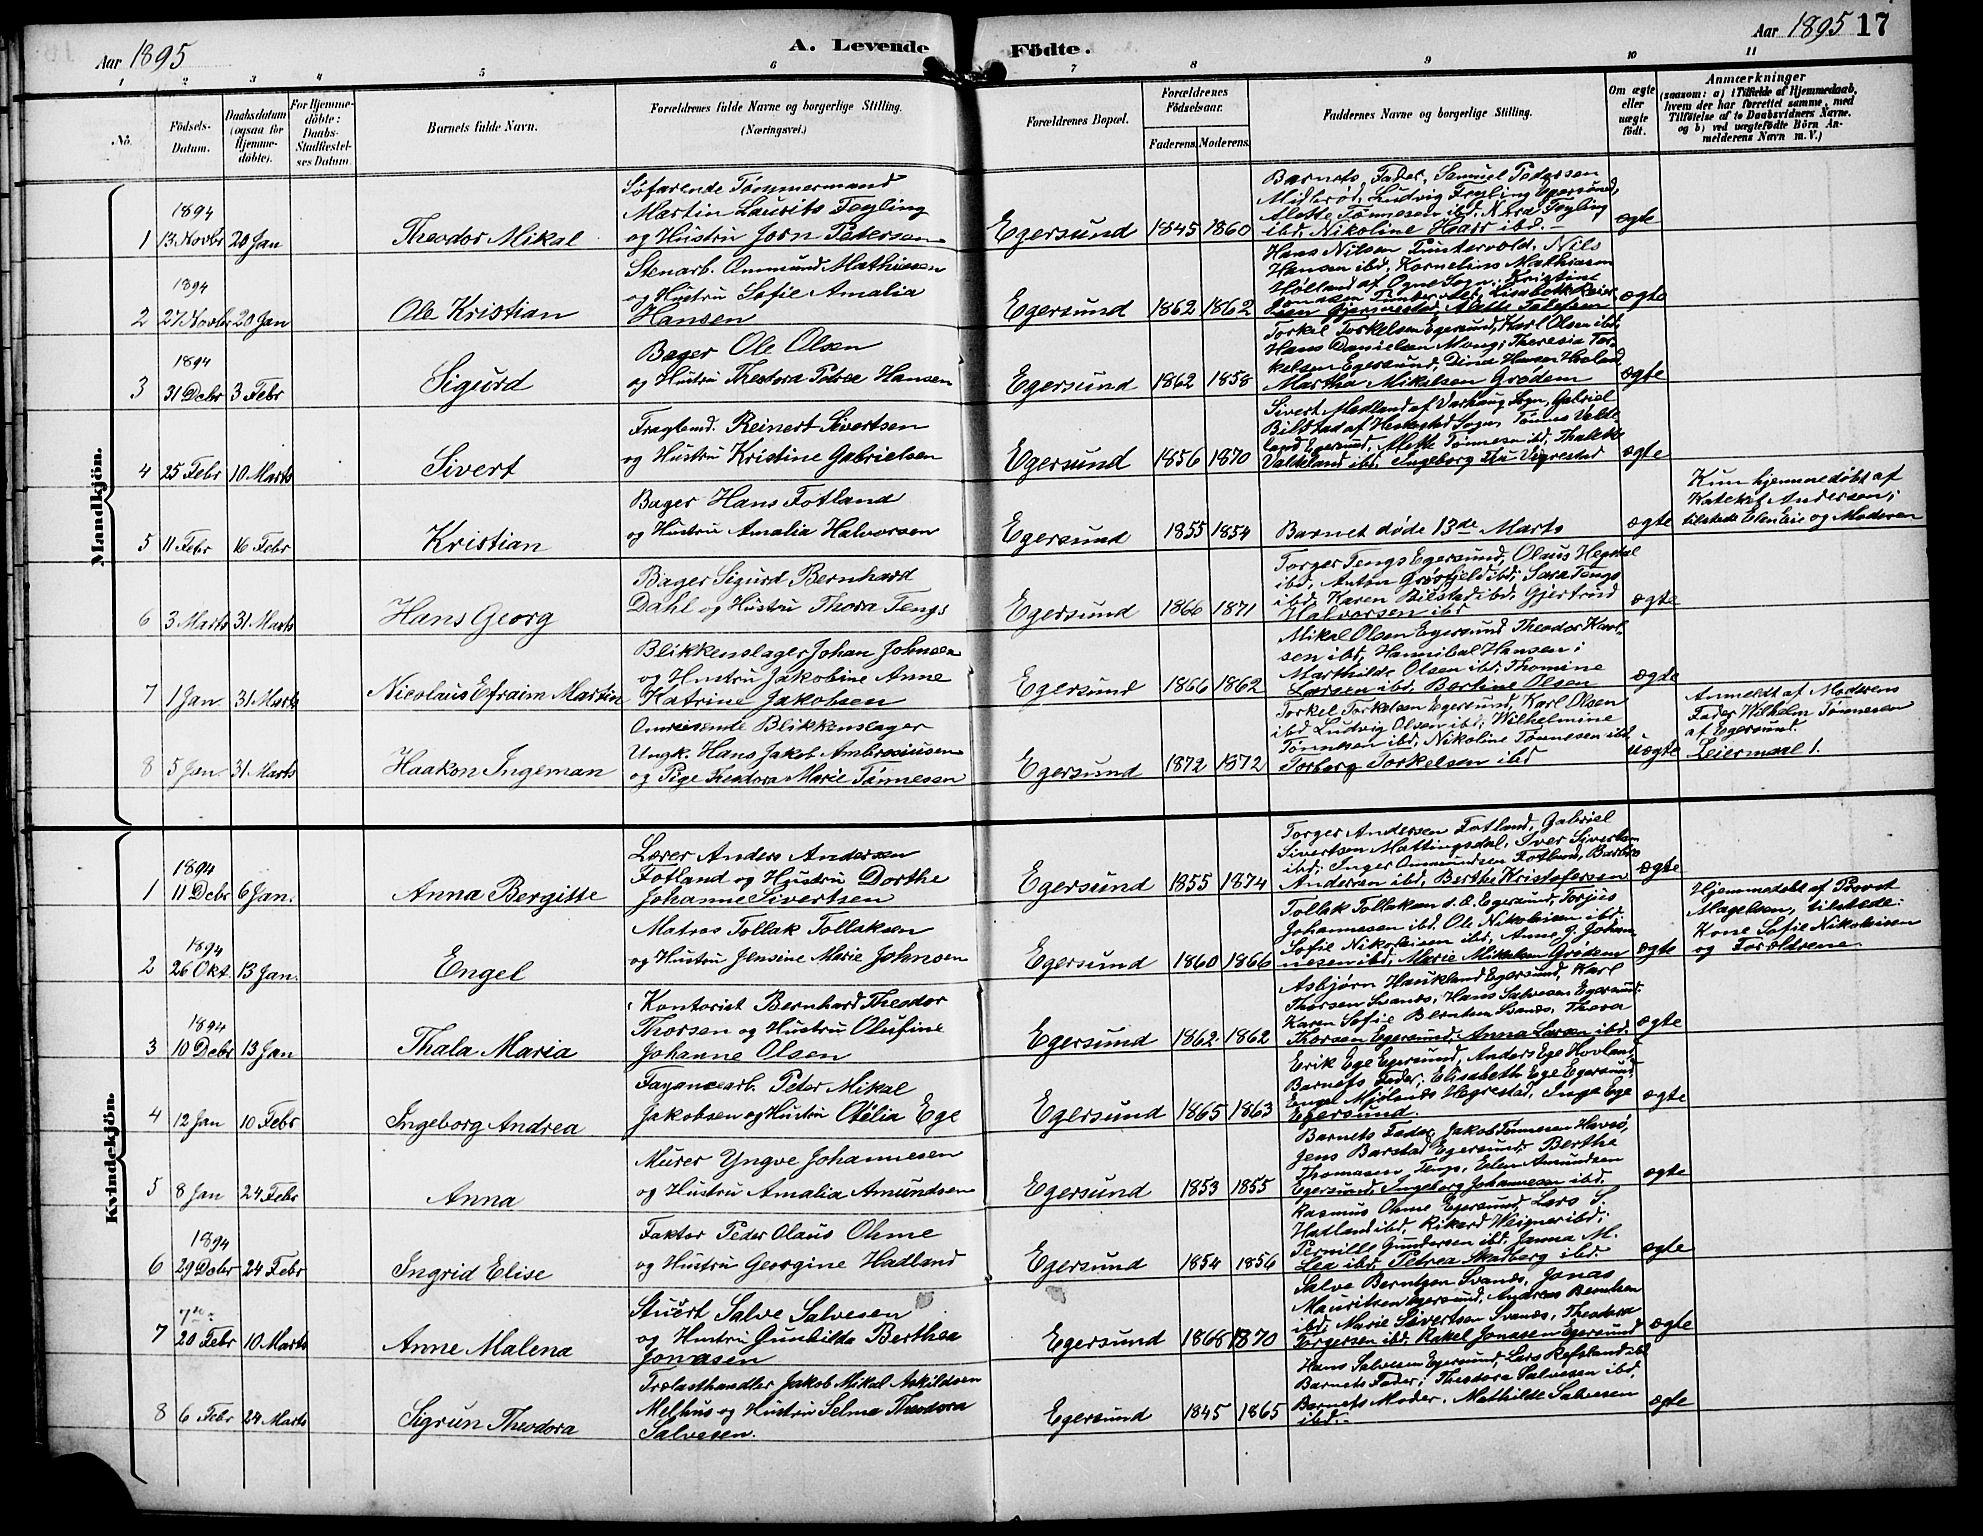 Aar 1895
A. Levende Födte.
Aar 1895 17
1 2 3 4 5 6 7 8 9 10 11
No.
Födsels-Datum.
Daabsdatum (ogsaa for Hjemmedöbte).
For Hjemmedöbte: Daabs-Stadfæstelses Datum.
Barnets fulde Navn.
Forældrenes fulde Navne og borgerlige Stilling.
(Næringsvei.)
Forældrenes Bopæl.
Forældrenes Födselsaar.
Faderens. Moderens.
Faddernes Navne og borgerlige Stilling.
Om ægte eller uægte født.
Anmærkninger
(saasom: a) i Tilfælde af Hjemmedaab,
hvem der har forrettet samme, med
Tilføielse af to Daabsvidners Navne.
og b) ved uægtefødte Börn Anmelderens Navn m. V.)
Mandkjön.
1 1894 13 Novbr 20 Jan
Theodor Mikal
Søfarende Tømmermand
Martin Laurits Feyling
og Hustru Jørn Petersen
Egersund 1845 1860
Barnets Fader, Samuel Pedersen
Midbrød, Ludvig Feyling Egersund,
Alette Tønnesen ibd, Nora Feyling
ibd, Nikoline Haar ibd.
ægte
2 1894 27 Novbr 20 Jan
Ole Kristian
Stenarb. Ommund Mathiesen
og Hustru Sofie Amalia
Hansen
Egersund 1862 1862
Hans Nilsen Tundervold, Nils
Hansen ibd, Kornelius Mathiasen
Hølland af Ogne Sogn, Kristine
ægte
3 1894 31 Debr 3 Febr
Sigurd
Bager Ole Olsen
og Hustru Theodora Petrea Hansen
Egersund 1862 1858
Torkel Torkelsen Egersund, Karl Olsen ibd,
Hans Danielsen Mong, Theresia Torkelsen
Egersund, Dina Hansen Hovland
Martha Mikelsen Grødem
ægte
4 25 Febr 10 Marts
Sivert
Fragtemd. Reinert Sivertsen
og Hustru Kristine Gabrielsen
Egersund 1856 1870
Sivert Madland af Varhaug Sogn, Gabriel
Bilstad af Heskestad Sogn, Tønnes Valdeland
Egersund, Mette Tønnesen ibd, Thalette
Valdeland ibd, Ingeborg Vigrestad
ægte
5 11 Febr 16 Febr
Kristian
Bager Hans Fotland
og Hustru Amalia Halvorsen
Egersund 1855 1854
Barnet døde 13de Marts
ægte
Kun hjemmedøbt af
Kateket Andersen;
tilstede Elen Eie og Moderen
6 3 Marts 31 Marts
Hans Georg
Bager Sigurd Bernhard
Dahl og Hustru Thora Tengs
Egersund 1866 1871
Torger Tengs Egersund, Olaus Hegdal
ibd, Anton Grøsfjeld ibd, Sara Tengs
ibd, Karen Bilstad ibd, Gjertrud
Halvorsen ibd
ægte
7 1 Jan 31 Marts
Nicolaus Efraim Martin
Blikkenslager Johan Johnsen
og Hustru Jakobine Anne
Katrine Jakobsen
Egersund 1866 1862
Mikal Olsen Egersund, Theodor Karlsen
ibd, Hannibal Hansen;
Marthilde Olsen ibd, Thomine
Larsen ibd, Bertine Olsen
ægte
8 5 Jan. 31 Marts
Haakon Ingeman
Omreisende Blikkenslager
Ungk. Hans Jakob Ambrosiusen
og Pige Teodora Marie Tønnesen
Egersund 1872 1872
Torkel Torkelsen Egersund, Karl Olsen
ibd Ludvig Olsen ibd; Wilhelmine
Tønnesen ibd, Nikoline Tønnesen ibd
Torborg Torkelsen ibd
uægte
Anmeldt af Moderens
Fader Wilhelm Tønnesen
af Egersund.
Leiermaal 1.
Kvindekjön.
1 1894 11 Debr 6 Jan.
Anna Bergitte
Lærer Anders Andersen
Fotland og Hustru Dorthe
Johanne Sivertsen
Egersund 1855 1874
Torger Andersen Fotland, Gabriel
Sivertsen Mattingsdal, Iver Sivertsen
ibd, Inger Ommundsen Fotland, Barbro
Andersen ibd, Berthe Kristofersen
ægte
2 1894 26 Okt. 13 Jan.
Engel
Matros Tollak Tollaksen
og Hustru Jensine Marie Johnsen
Egersund 1860 1866
Tollak Tollaksen d. E. Egersund, Torjus
Johannesen ibd. Ole Nikolaisen ibd.
Sofie Nikolaisen ibd, Anne G. Johannesen
ibd, Marie Mikelsen Grødem
ægte
Hjemmedøbt af Provst
Magelsen, tilstede:
Kone Sofie Nikolaisen
og Forældrene.
3 1894 10 Debr 13 Jan
Thala Maria
Kontorist Bernhard Theodor
Thorsen og Hustru Olufine
Johanne Olsen
Egersund 1862 1862
Asbjørn Haukland Egersund, Karl
Thorsen Svanes, Hans Salvesen Egersund
Karen Sofie Berntsen Svanes, Thora
Thorsen Egersund, Anna Larsen ibd.
ægte
4 12 Jan 10 Febr
Ingeborg Andrea
Fayancearb. Peter Mikal
Jakobsen og Hustru Otelia Ege
Egersund 1865 1863
Erik Ege Egersund, Anders Ege Hovland,
Barnets Fader; Elisabeth Ege Egersund
Engel Mjølands Hegrestad, Inga Ege
Egersund.
ægte
5 8 Jan 24 Febr
Anna
Murer Yngve Johannesen
og Hustru Amalia Amundsen
Egersund 1853 1855
Barnets Fader, Jakob Tønnesen Havsø,
Jens Barstad Egersund, Berthe
Thomasen Tengs, Elen Amundsen
Egersund, Ingeborg Johannesen ibd.
ægte
6 1894 29 Debr 24 Febr
Ingrid Elise
Faktor Peder Olaus Ohme
og Hustru Georgine Hadland
Egersund 1854 1856
Rasmus Ohme Egersund, Lars S.
Hatland ibd, Rikard Weigner ibd;
Pernille Gundersen ibd. Janna M.
Lea ibd, Petrea Skadberg ibd.
ægte
7 20 Febr 10 Marts
Anne Malena
Stuert Salve Salvesen
og Hustru Gunhilde Berthea
Jonasen
Egersund 1866 1870
Salve Berntsen Svanes, Jonas
Mauritsen Egersund, Andreas Berntsen
ibd, Marie Sivertsen Svanes, Theodora
Torgersen ibd, Rakel Jonasen Egersund
ægte
8 6 Febr 24 Marts
Sigrun Theodora
Trælasthandler Jakob Mikal Askildsen
Melhus og Hustru Selma Theodora
Salvesen.
Egersund 1845 1865
Hans Salvesen Egersund, Lars Refsland ibd
Barnets Fader; Theodora Salvesen ibd,
Barnets Moder, Mathilde Salvesen
ibd.
ægte